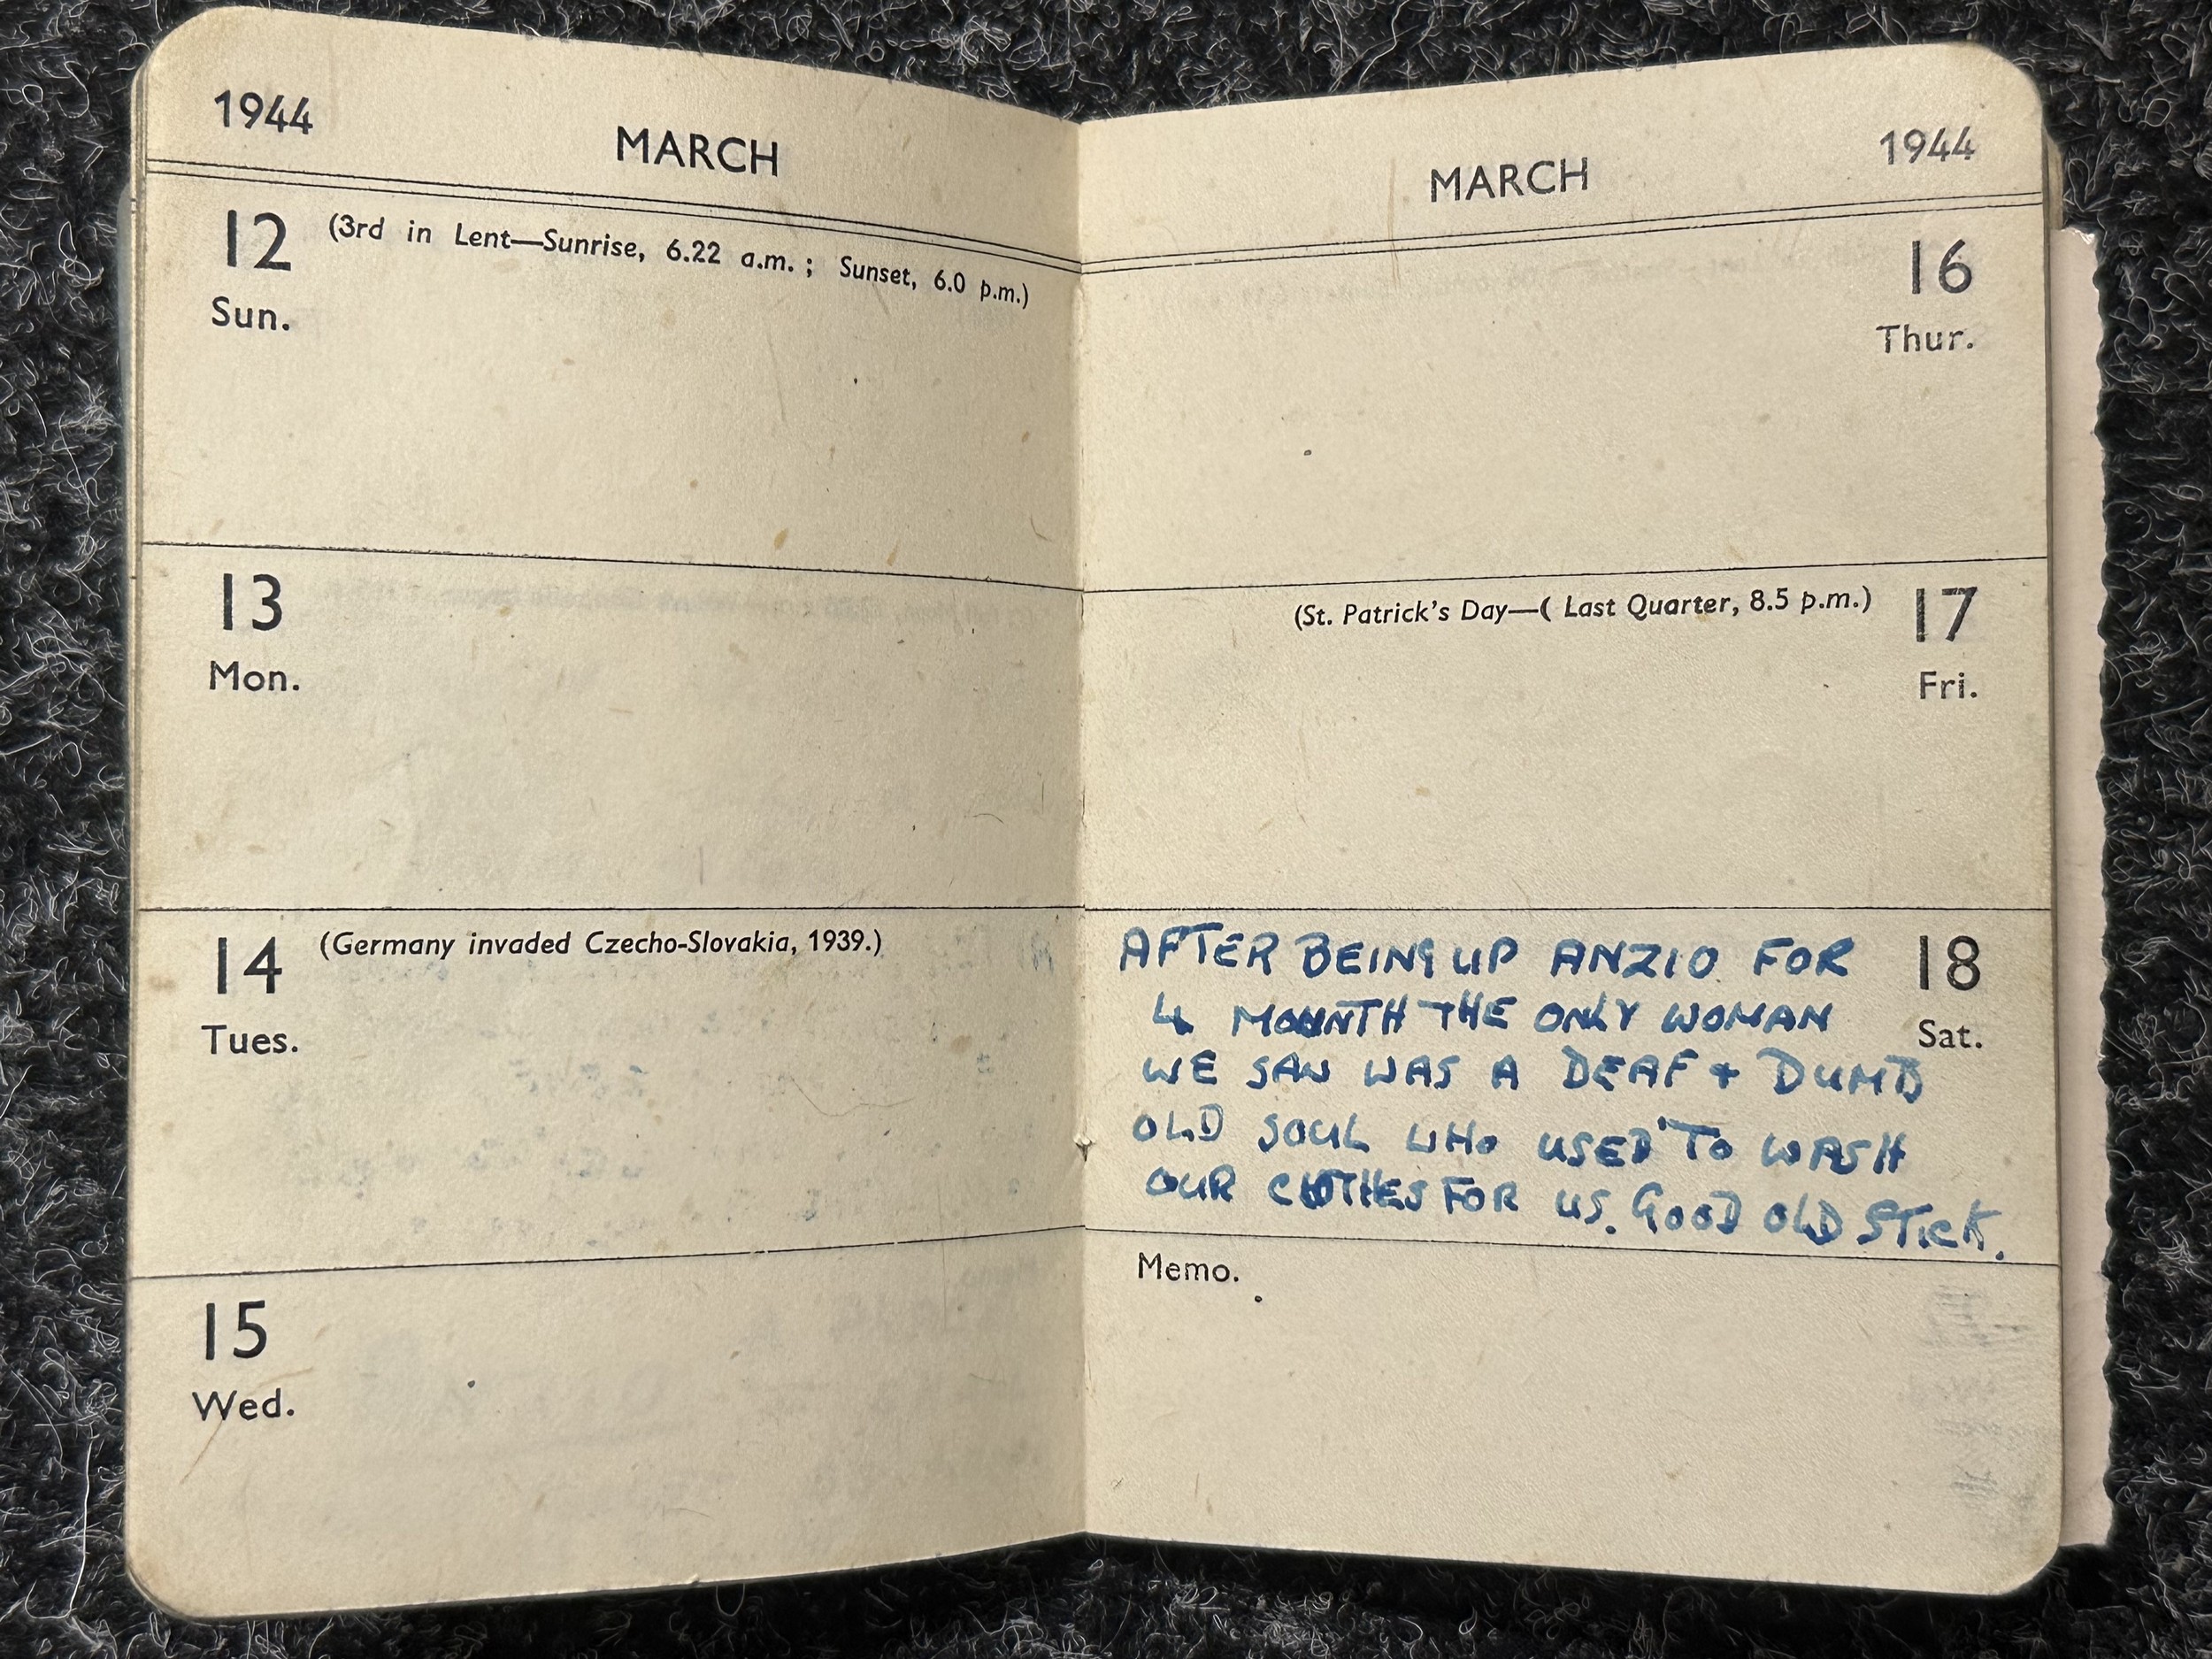 1944
MARCH
12 (3rd in Lent—Sunrise, 6.22 a.m.; Sunset, 6.0 p.m.)
Sun.
13
Mon.
14 (Germany invaded Czecho-Slovakia, 1939.)
Tues.
15
Wed.
MARCH
1944
16
Thur.
(St. Patrick's Day—( Last Quarter, 8.5 p.m.) 17
Fri.
AFTER BEING UP ANZIO FOR 18
4 MOUNTH THE ONLY WOMAN
Sat.
WE SAW WAS A DEAF + DUMB
OLD SOUL WHO USED TO WASH
OUR CLOTHES FOR US. GOOD OLD STICK.
Memo.